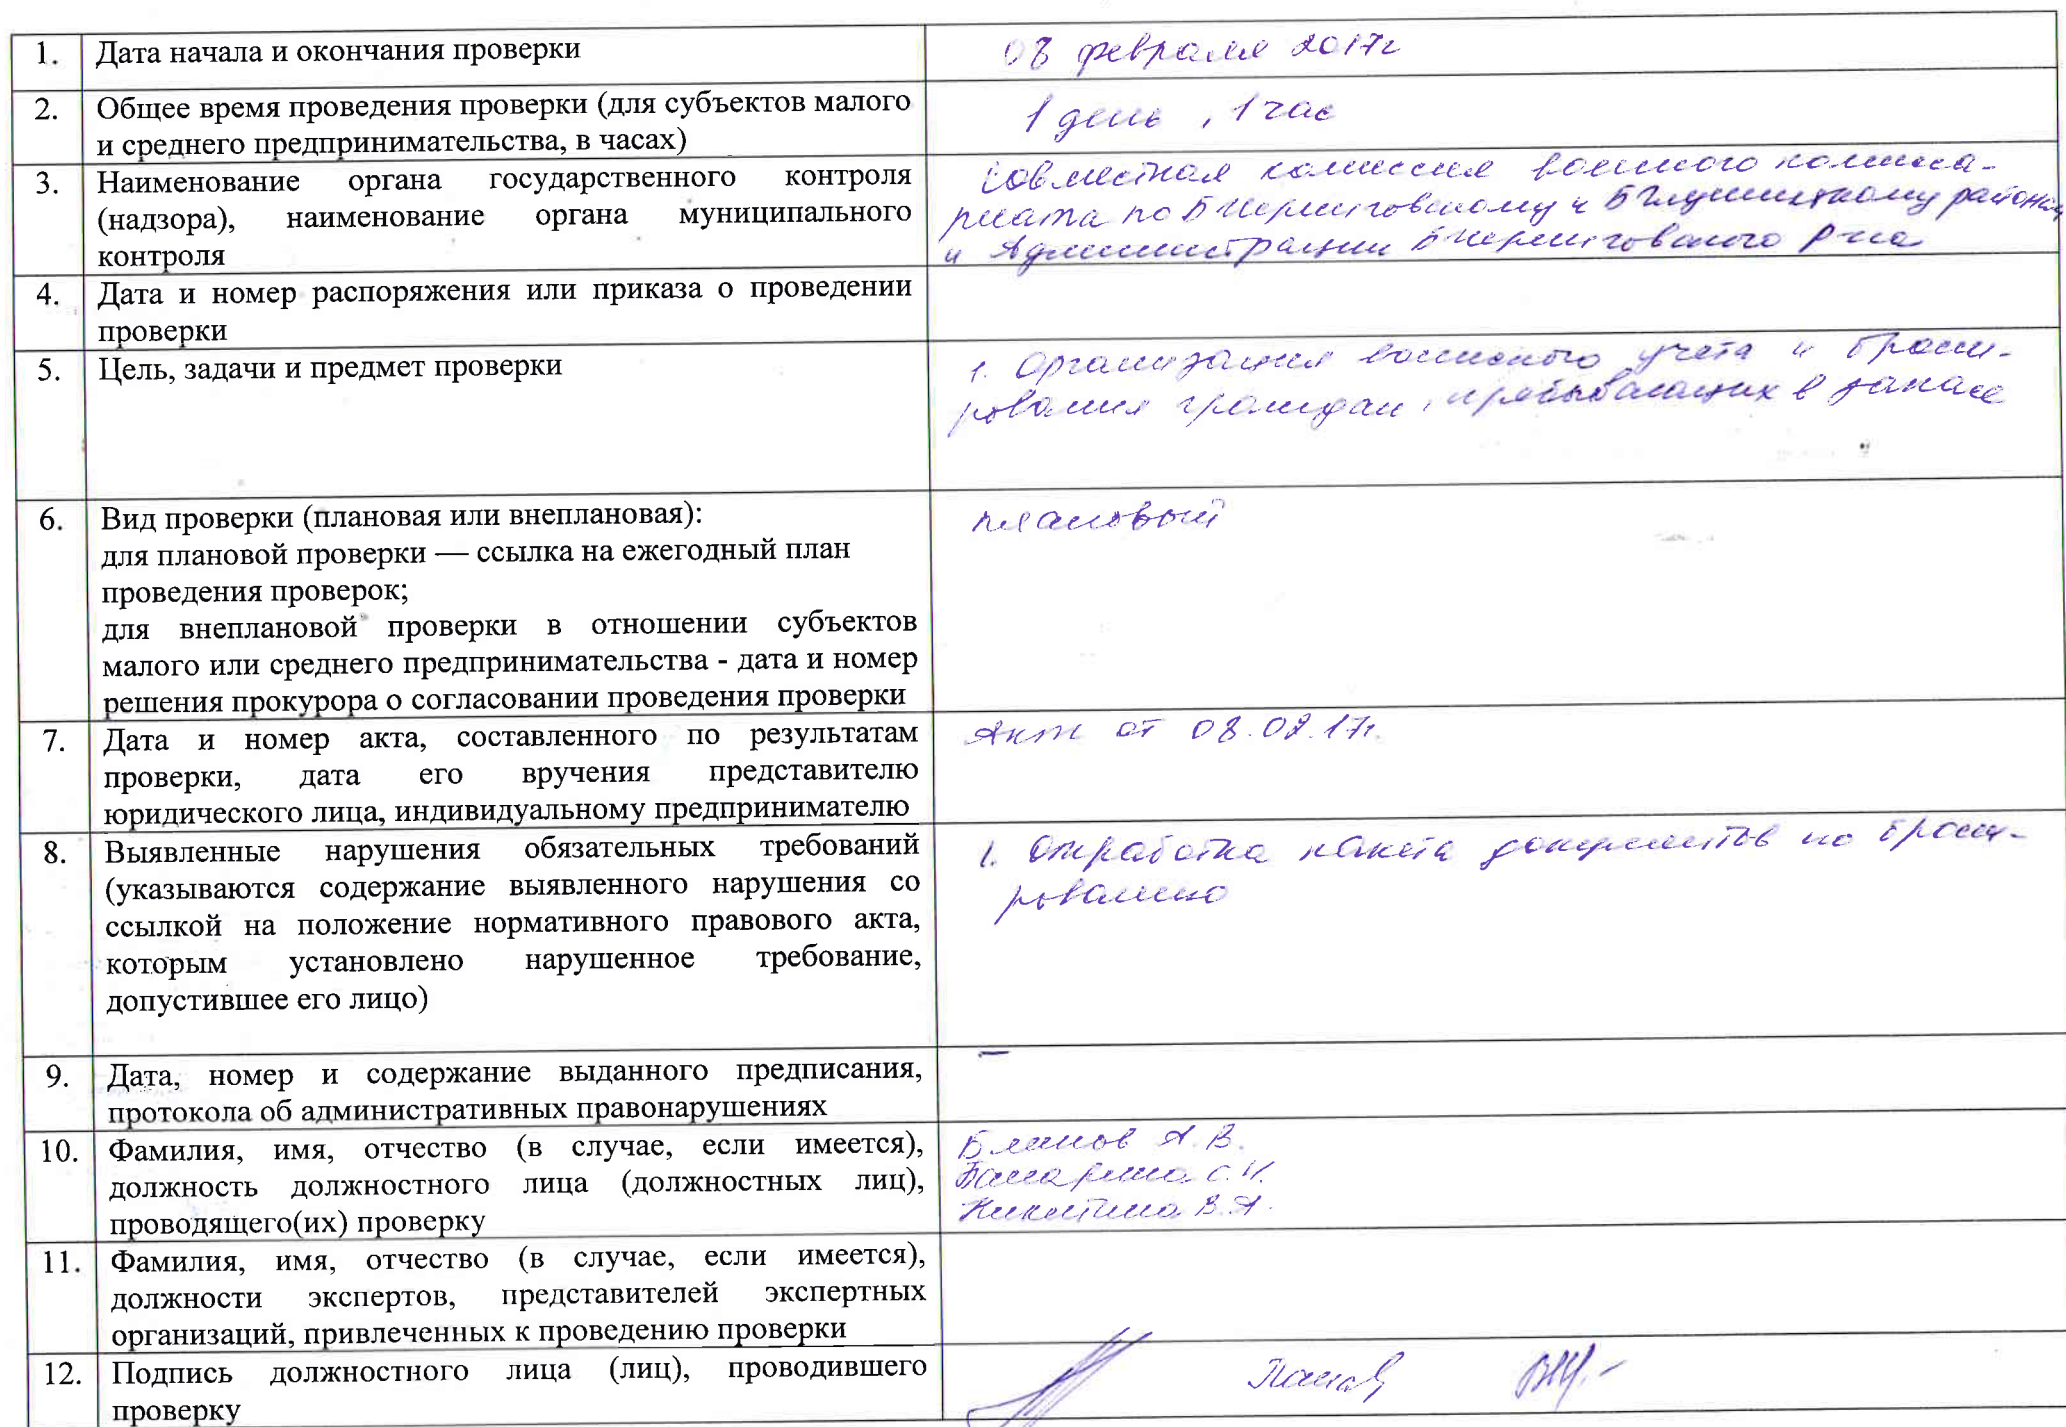 1. Дата начала и окончания проверки 08 февраля 2017г
2. Общее время проведения проверки (для субъектов малого
и среднего предпринимательства, в часах)
1 день, 1 час
3. Наименование органа государственного контроля
(надзора), наименование органа муниципального
контроля
Совместная комиссия военного комисса-
риата по БЧерниговскому и БГлушицкому районам
и Администрации БЧерниговского р-на
4. Дата и номер распоряжения или приказа о проведении
проверки
5. Цель, задачи и предмет проверки
1. Организация воинского учета и брони-
рования граждан, пребывающих в запасе
6. Вид проверки (плановая или внеплановая):
для плановой проверки — ссылка на ежегодный план
проведения проверок;
для внеплановой проверки в отношении субъектов
малого или среднего предпринимательства - дата и номер
решения прокурора о согласовании проведения проверки
плановый
7. Дата и номер акта, составленного по результатам
проверки, дата его вручения представителю
юридического лица, индивидуальному предпринимателю
Акт от 08.02.17г.
8. Выявленные нарушения обязательных требований
(указываются содержание выявленного нарушения со
ссылкой на положение нормативного правового акта,
которым установлено нарушенное требование,
допустившее его лицо)
1. Отработка пакета документов по брони-
рованию
9. Дата, номер и содержание выданного предписания,
протокола об административных правонарушениях
–
10. Фамилия, имя, отчество (в случае, если имеется),
должность должностного лица (должностных лиц),
проводящего(их) проверку
Блинов А.В.
С.И.
Никитина В.А.
11. Фамилия, имя, отчество (в случае, если имеется),
должности экспертов, представителей экспертных
организаций, привлеченных к проведению проверки
12. Подпись должностного лица (лиц), проводившего
проверку